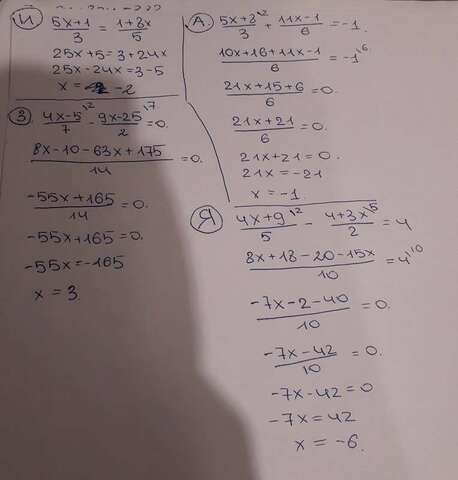 И) (5x+1)/3 = (1+8x)/5
25x+5=3+24x
25x-24x=3-5
x = -2
З) (4x-5)/7 \2 - (9x-25)/2 \7 =0.
(8x-10-63x+175)/14 =0.
(-55x+165)/14 =0.
-55x+165=0.
-55x=-165
x = 3.
А) (5x+8)/3 \2 + (11x-1)/6 = -1.
(10x+16+11x-1)/6 = -1 \6
(21x+15+6)/6 =0.
(21x+21)/6 =0.
21x+21=0.
21x=-21
x = -1.
Я) (4x+9)/5 \2 - (4+3x)/2 \5 = 4
(8x+18-20-15x)/10 = 4 \10
(-7x-2-40)/10 =0.
(-7x-42)/10 =0.
-7x-42=0
-7x=42
x = -6.